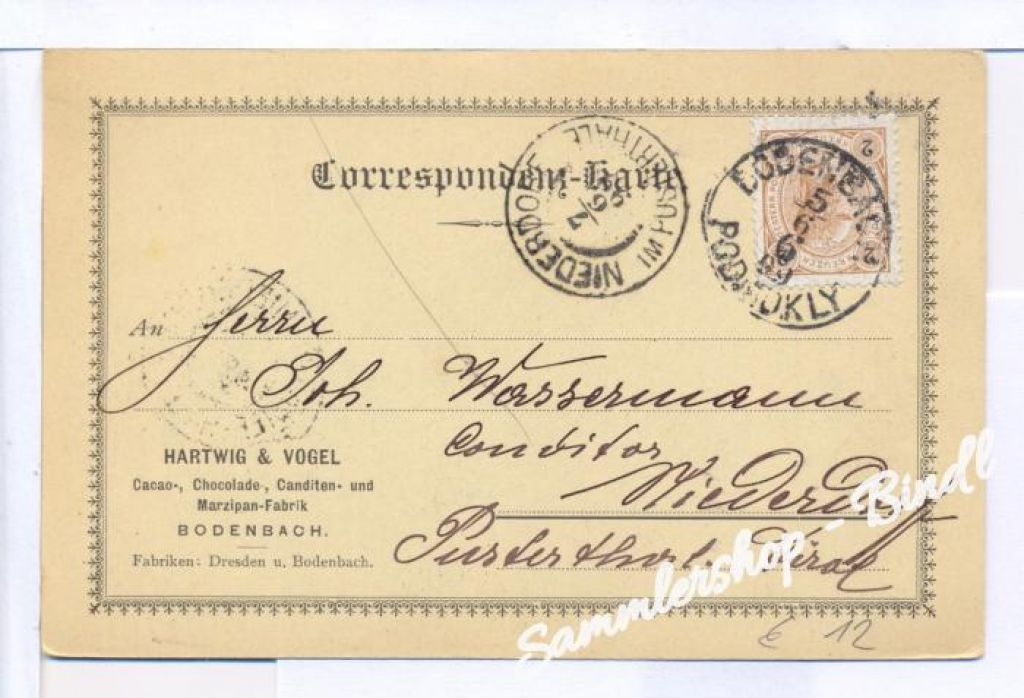 Correspondenz-Karte
NIEDERDORF
IM PUSTERTHALE
BODENBACH
PODMOKLY
5
6
99
2
2
An Herrn
Joh. Wassermann
Conditor
Niederdorf
Pusterthal. Tirol
HARTWIG & VOGEL
Cacao-, Chocolade-, Canditen- und
Marzipan-Fabrik
BODENBACH.
Fabriken: Dresden u. Bodenbach.
Sammlershop - Bindl
€ 12